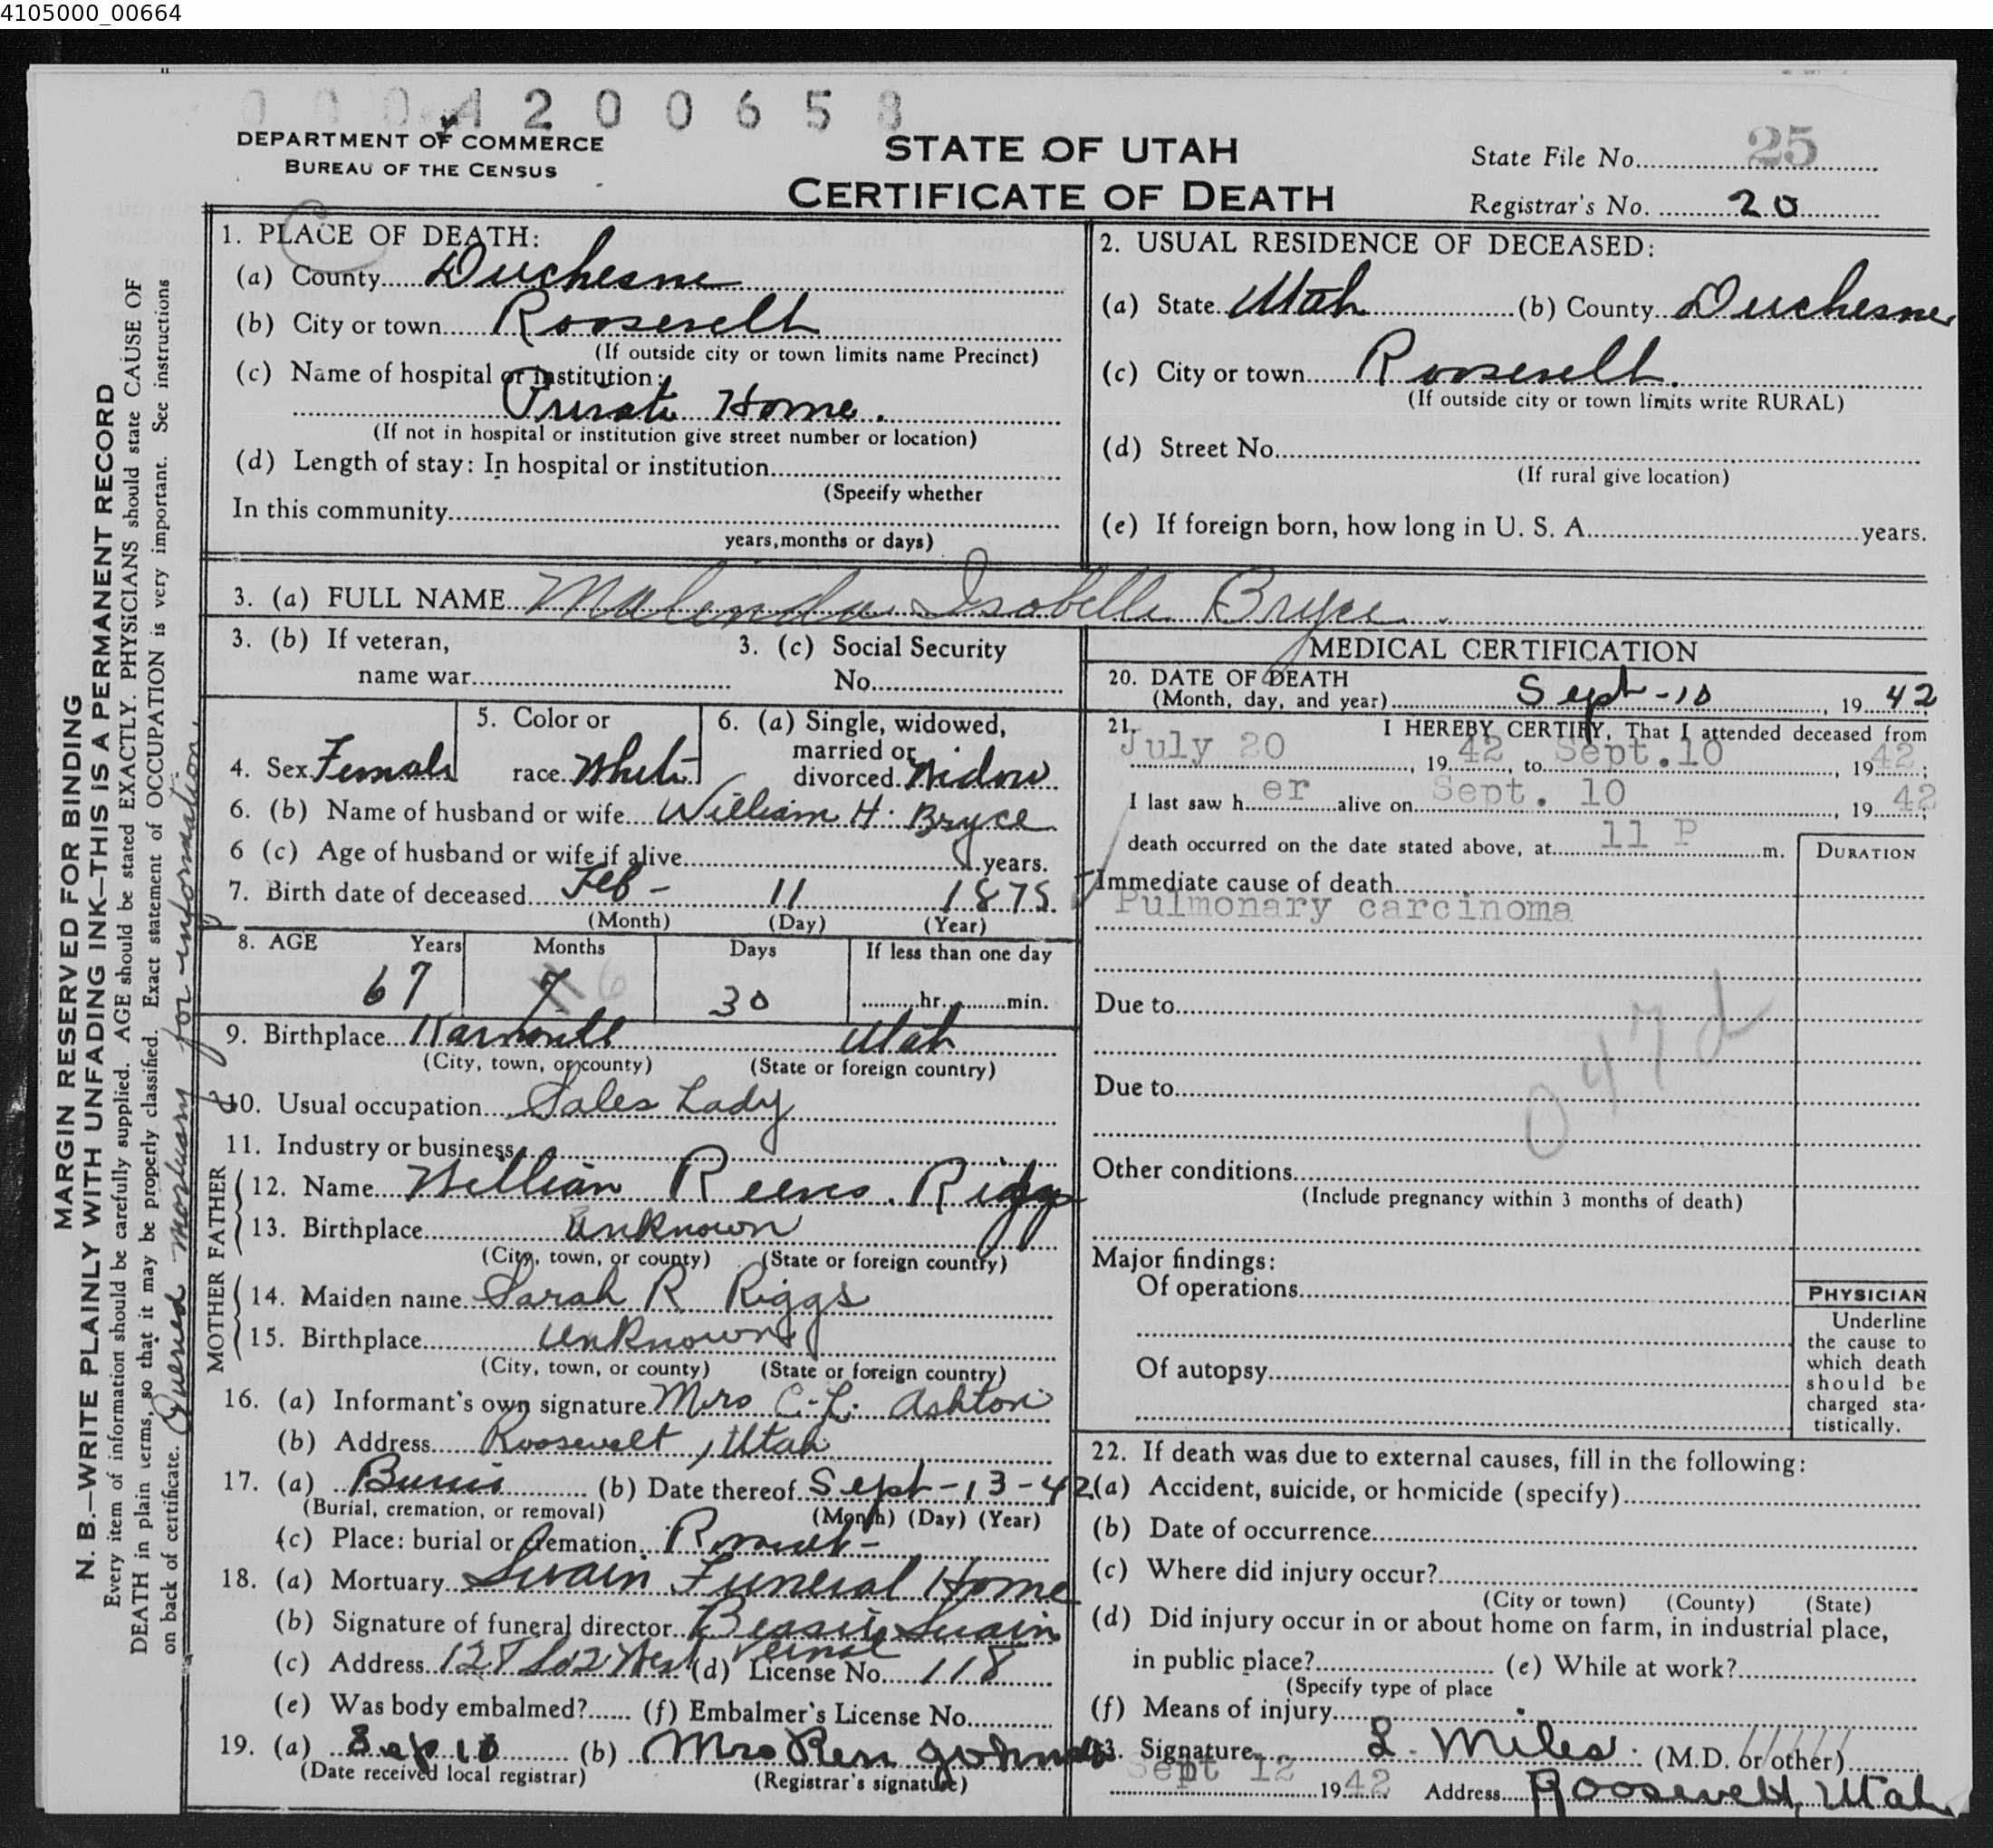 4105000_00664
0004200658
DEPARTMENT OF COMMERCE
BUREAU OF THE CENSUS
STATE OF UTAH
CERTIFICATE OF DEATH
State File No. 25
Registrar's No. 20
MARGIN RESERVED FOR BINDING
N. B.—WRITE PLAINLY WITH UNFADING INK—THIS IS A PERMANENT RECORD
Every item of information should be carefully supplied. AGE should be stated EXACTLY. PHYSICIANS should state CAUSE OF
DEATH in plain terms, so that it may be properly classified. Exact statement of OCCUPATION is very important. See instructions
on back of certificate. Queried mortuary for information
1. PLACE OF DEATH:
(a) County Duchesne
(b) City or town Roosevelt
(If outside city or town limits name Precinct)
(c) Name of hospital or institution:
Private Home.
(If not in hospital or institution give street number or location)
(d) Length of stay: In hospital or institution
(Specify whether
In this community
years, months or days)
2. USUAL RESIDENCE OF DECEASED:
(a) State Utah (b) County Duchesne
(c) City or town Roosevelt.
(If outside city or town limits write RURAL)
(d) Street No.
(If rural give location)
(e) If foreign born, how long in U. S. A. years.
3. (a) FULL NAME Malinda Isobelle Bryce
3. (b) If veteran,
name war
3. (c) Social Security
No.
4. Sex Female
5. Color or
race White
6. (a) Single, widowed,
married or
divorced Widow
6. (b) Name of husband or wife William H. Bryce
6 (c) Age of husband or wife if alive years.
7. Birth date of deceased Feb - 11 1875
(Month) (Day) (Year)
8. AGE Years Months Days If less than one day
67 7 6 30 hr. min.
9. Birthplace Utah
(City, town, or county) (State or foreign country)
10. Usual occupation Sales Lady
11. Industry or business
FATHER
12. Name William Reeves Riggs
13. Birthplace Unknown
(City, town, or county) (State or foreign country)
MOTHER
14. Maiden name Sarah R Riggs
15. Birthplace Unknown
(City, town, or county) (State or foreign country)
16. (a) Informant's own signature Mrs C. L. Ashton
(b) Address Roosevelt, Utah
17. (a) (b) Date thereof Sept-13-42
(Burial, cremation, or removal) (Month) (Day) (Year)
(c) Place: burial or cremation
18. (a) Mortuary Swain Funeral Home
(b) Signature of funeral director Beassie Swain
(c) Address 127 So 2 West Vernal (d) License No. 118
(e) Was body embalmed? (f) Embalmer's License No.
19. (a) Sep 10 (b) Mrs Ren
(Date received local registrar) (Registrar's signature)
MEDICAL CERTIFICATION
20. DATE OF DEATH
(Month, day, and year) Sept-10, 19 42
21. I HEREBY CERTIFY, That I attended deceased from
July 20, 19 42 to Sept. 10, 19 42;
I last saw h er alive on Sept. 10, 19 42;
death occurred on the date stated above, at 11 P m.
DURATION
Immediate cause of death
Pulmonary carcinoma
Due to
047d
Due to
Other conditions
(Include pregnancy within 3 months of death)
Major findings:
Of operations
Of autopsy
PHYSICIAN
Underline
the cause to
which death
should be
charged sta-
tistically.
22. If death was due to external causes, fill in the following:
(a) Accident, suicide, or homicide (specify)
(b) Date of occurrence
(c) Where did injury occur?
(City or town) (County) (State)
(d) Did injury occur in or about home on farm, in industrial place,
in public place? (e) While at work?
(Specify type of place
(f) Means of injury
23. Signature L. Miles. (M.D. or other)
Sept 12 19 42 Address Roosevelt, Utah